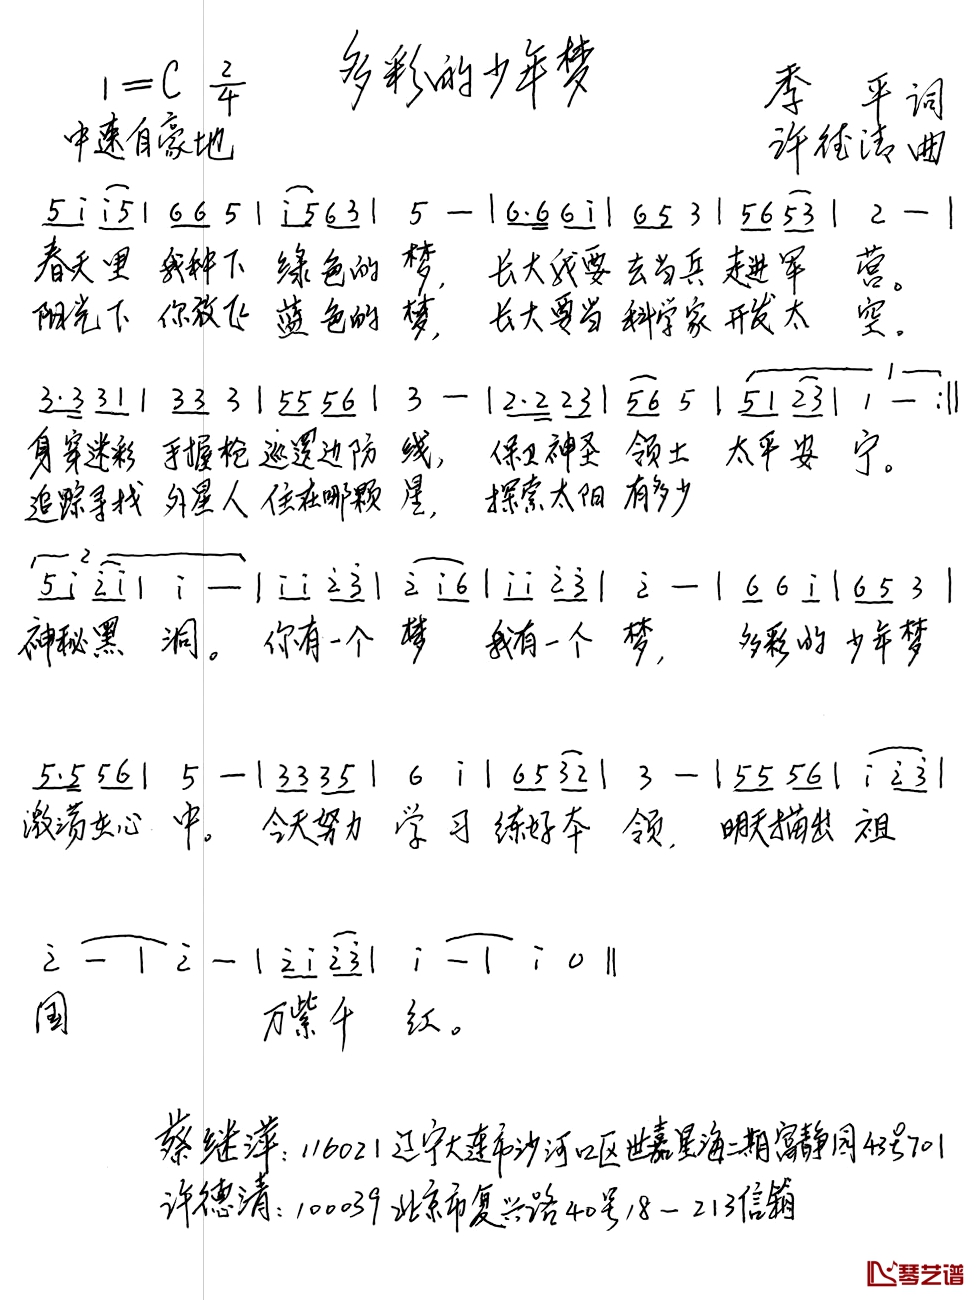 多彩的少年梦
1=C 2/4
季 平 词
中速自豪地
许德清 曲
5 i i5 | 6 6 5 | i563 | 5 — | 6·6 6i | 65 3 | 56 53 | 2 — |
春天里 我种下 绿色的 梦, 长大我要 去当兵 走进军 营。
阳光下 你放飞 蓝色的 梦, 长大要当 科学家 开发太 空。
3·3 31 | 33 3 | 55 56 | 3 — | 2·2 23 | 56 5 | 51 23 | 1 — :||
身穿迷彩 手握枪 巡逻边防 线, 保卫神圣 领土 太平安 宁。
追踪寻找 外星人 住在哪颗 星, 探索太阳 有多少
5i 2i | i — | ii 23 | 2 i6 | ii 23 | 2 — | 6 6 i | 65 3 |
神秘黑 洞。 你有一个 梦 我有一个 梦, 多彩的 少年梦
5·5 56 | 5 — | 33 35 | 6 i | 65 32 | 3 — | 55 56 | i 23 |
激荡在心 中。 今天努力 学习 练好本 领, 明天描出 祖
2 — | 2 — | 2i 23 | i — | i 0 ||
国 万紫千 红。
蔡继萍: 116021 辽宁大连市沙河口区世嘉星海二期富静园43号701
许德清: 100039 北京市复兴路40号18—213信箱
琴艺谱